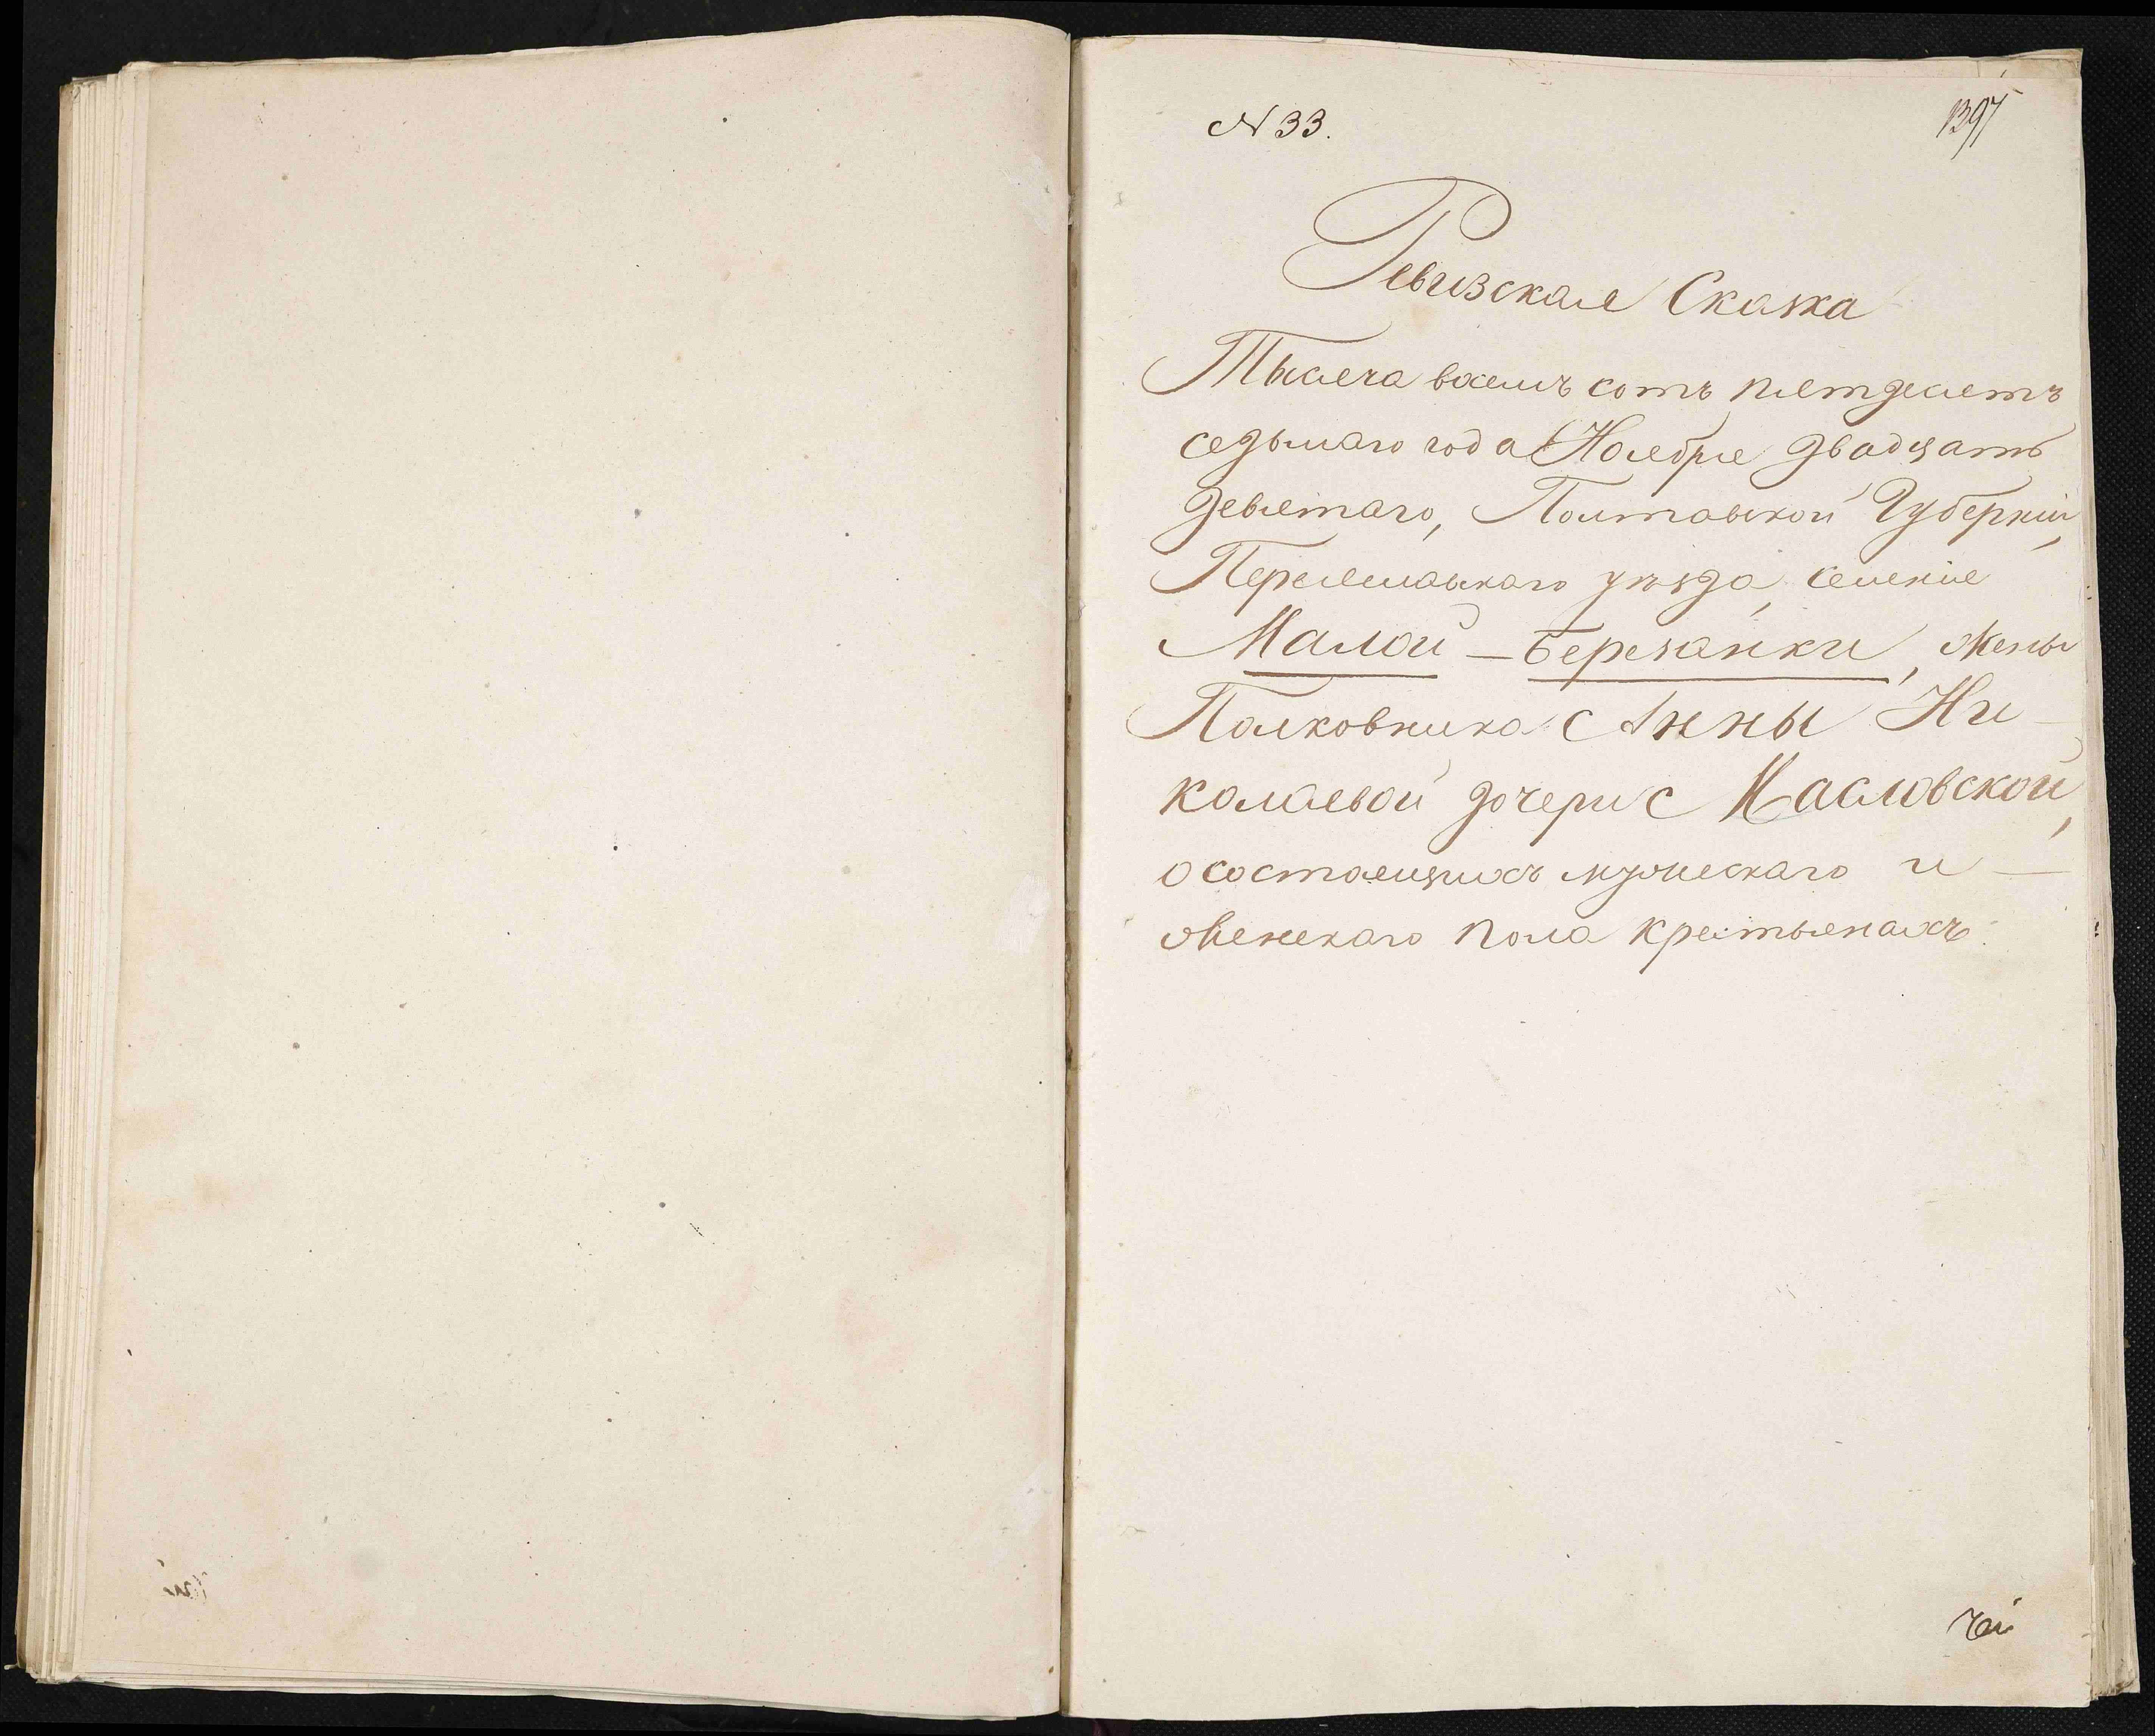 N 33.
1397
Ревизская Сказка
Тысяча восемь сотъ пятдесятъ
седьмаго года Ноября двадцать
девятаго, Полтавской Губерніи,
Переяславскаго уѣзда, селенія
Малой – Березанки, жены
Полковника Анны Ни-
колаевой дочери Масловской,
о состоящихъ мужескаго и –
женскаго пола крестьянахъ.